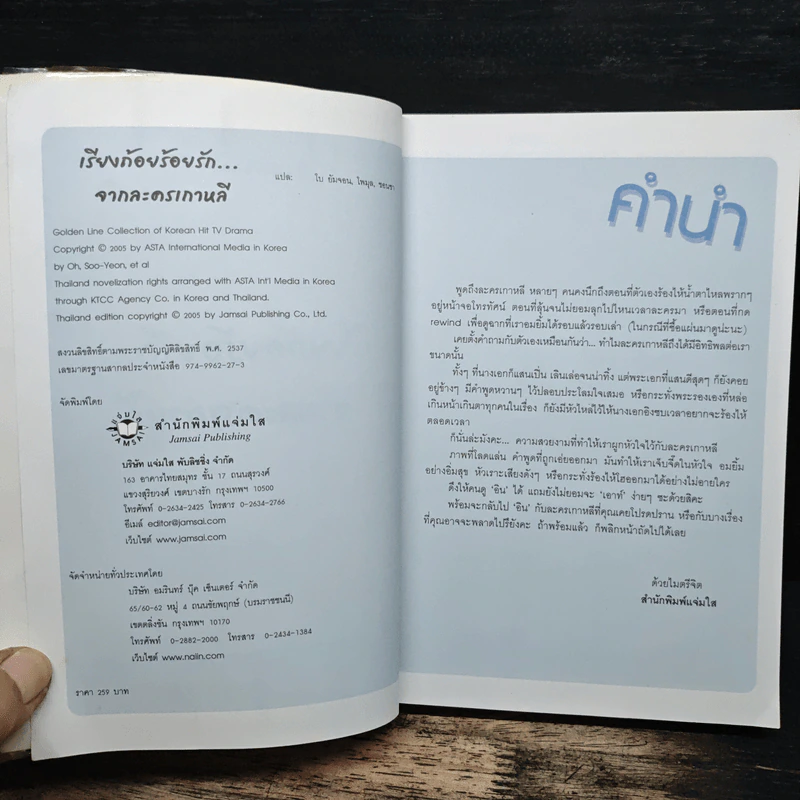 เรียงถ้อยร้อยรัก...
จากละครเกาหลี
แปล: โบ ยัมจอน, ไพมุล, ชอนซา
Golden Line Collection of Korean Hit TV Drama
Copyright © 2005 by ASTA International Media in Korea
by Oh, Soo-Yeon, et al
Thailand novelization rights arranged with ASTA Int'l Media in Korea
through KTCC Agency Co. in Korea and Thailand.
Thailand edition copyright © 2005 by Jamsai Publishing Co., Ltd.
สงวนลิขสิทธิ์ตามพระราชบัญญัติลิขสิทธิ์ พ.ศ. 2537
เลขมาตรฐานสากลประจำหนังสือ 974-9962-27-3
จัดพิมพ์โดย
แจ่มใส
JAMSAI
สำนักพิมพ์แจ่มใส
Jamsai Publishing
บริษัท แจ่มใส พับลิชชิ่ง จำกัด
163 อาคารไทยสมุทร ชั้น 17 ถนนสุรวงศ์
แขวงสุริยวงศ์ เขตบางรัก กรุงเทพฯ 10500
โทรศัพท์ 0-2634-2425 โทรสาร 0-2634-2766
อีเมล์ editor@jamsai.com
เว็บไซต์ www.jamsai.com
จัดจำหน่ายทั่วประเทศโดย
บริษัท อมรินทร์ บุ๊ค เซ็นเตอร์ จำกัด
65/60-62 หมู่ 4 ถนนชัยพฤกษ์ (บรมราชชนนี)
เขตตลิ่งชัน กรุงเทพฯ 10170
โทรศัพท์ 0-2882-2000 โทรสาร 0-2434-1384
เว็บไซต์ www.naiin.com
ราคา 259 บาท
คำนำ
พูดถึงละครเกาหลี หลายๆ คนคงนึกถึงตอนที่ตัวเองร้องไห้น้ำตาไหลพรากๆ
อยู่หน้าจอโทรทัศน์ ตอนที่ลุ้นจนไม่ยอมลุกไปไหนเวลาละครมา หรือตอนที่กด
rewind เพื่อดูฉากที่เราอมยิ้มได้รอบแล้วรอบเล่า (ในกรณีที่ซื้อแผ่นมาดูน่ะนะ)
เคยตั้งคำถามกับตัวเองเหมือนกันว่า... ทำไมละครเกาหลีถึงได้มีอิทธิพลต่อเรา
ขนาดนั้น
ทั้งๆ ที่นางเอกก็แสนเป็น เลินเล่อจนน่าทึ่ง แต่พระเอกที่แสนดีสุดๆ ก็ยังคอย
อยู่ข้างๆ มีคำพูดหวานๆ ไว้ปลอบประโลมใจเสมอ หรือกระทั่งพระรองเองที่หล่อ
เกินหน้าเกินตาทุกคนในเรื่อง ก็ยังมีหัวไหล่ไว้ให้นางเอกอิงซบเวลาอยากจะร้องไห้
ตลอดเวลา
ก็นั่นล่ะมังคะ... ความสวยงามที่ทำให้เราผูกหัวใจไว้กับละครเกาหลี
ภาพที่โลดแล่น คำพูดที่ถูกเอ่ยออกมา มันทำให้เราเจ็บจี๊ดในหัวใจ อมยิ้ม
อย่างอิ่มสุข หัวเราะเสียงดังๆ หรือกระทั่งร้องไห้โฮออกมาได้อย่างไม่อายใคร
ดึงให้คนดู 'อิน' ได้ แถมยังไม่ยอมจะ 'เอาท์' ง่ายๆ ซะด้วยสิคะ
พร้อมจะกลับไป 'อิน' กับละครเกาหลีที่คุณเคยโปรดปราน หรือกับบางเรื่อง
ที่คุณอาจจะพลาดไปรึยังคะ ถ้าพร้อมแล้ว ก็พลิกหน้าถัดไปได้เลย
ด้วยไมตรีจิต
สำนักพิมพ์แจ่มใส